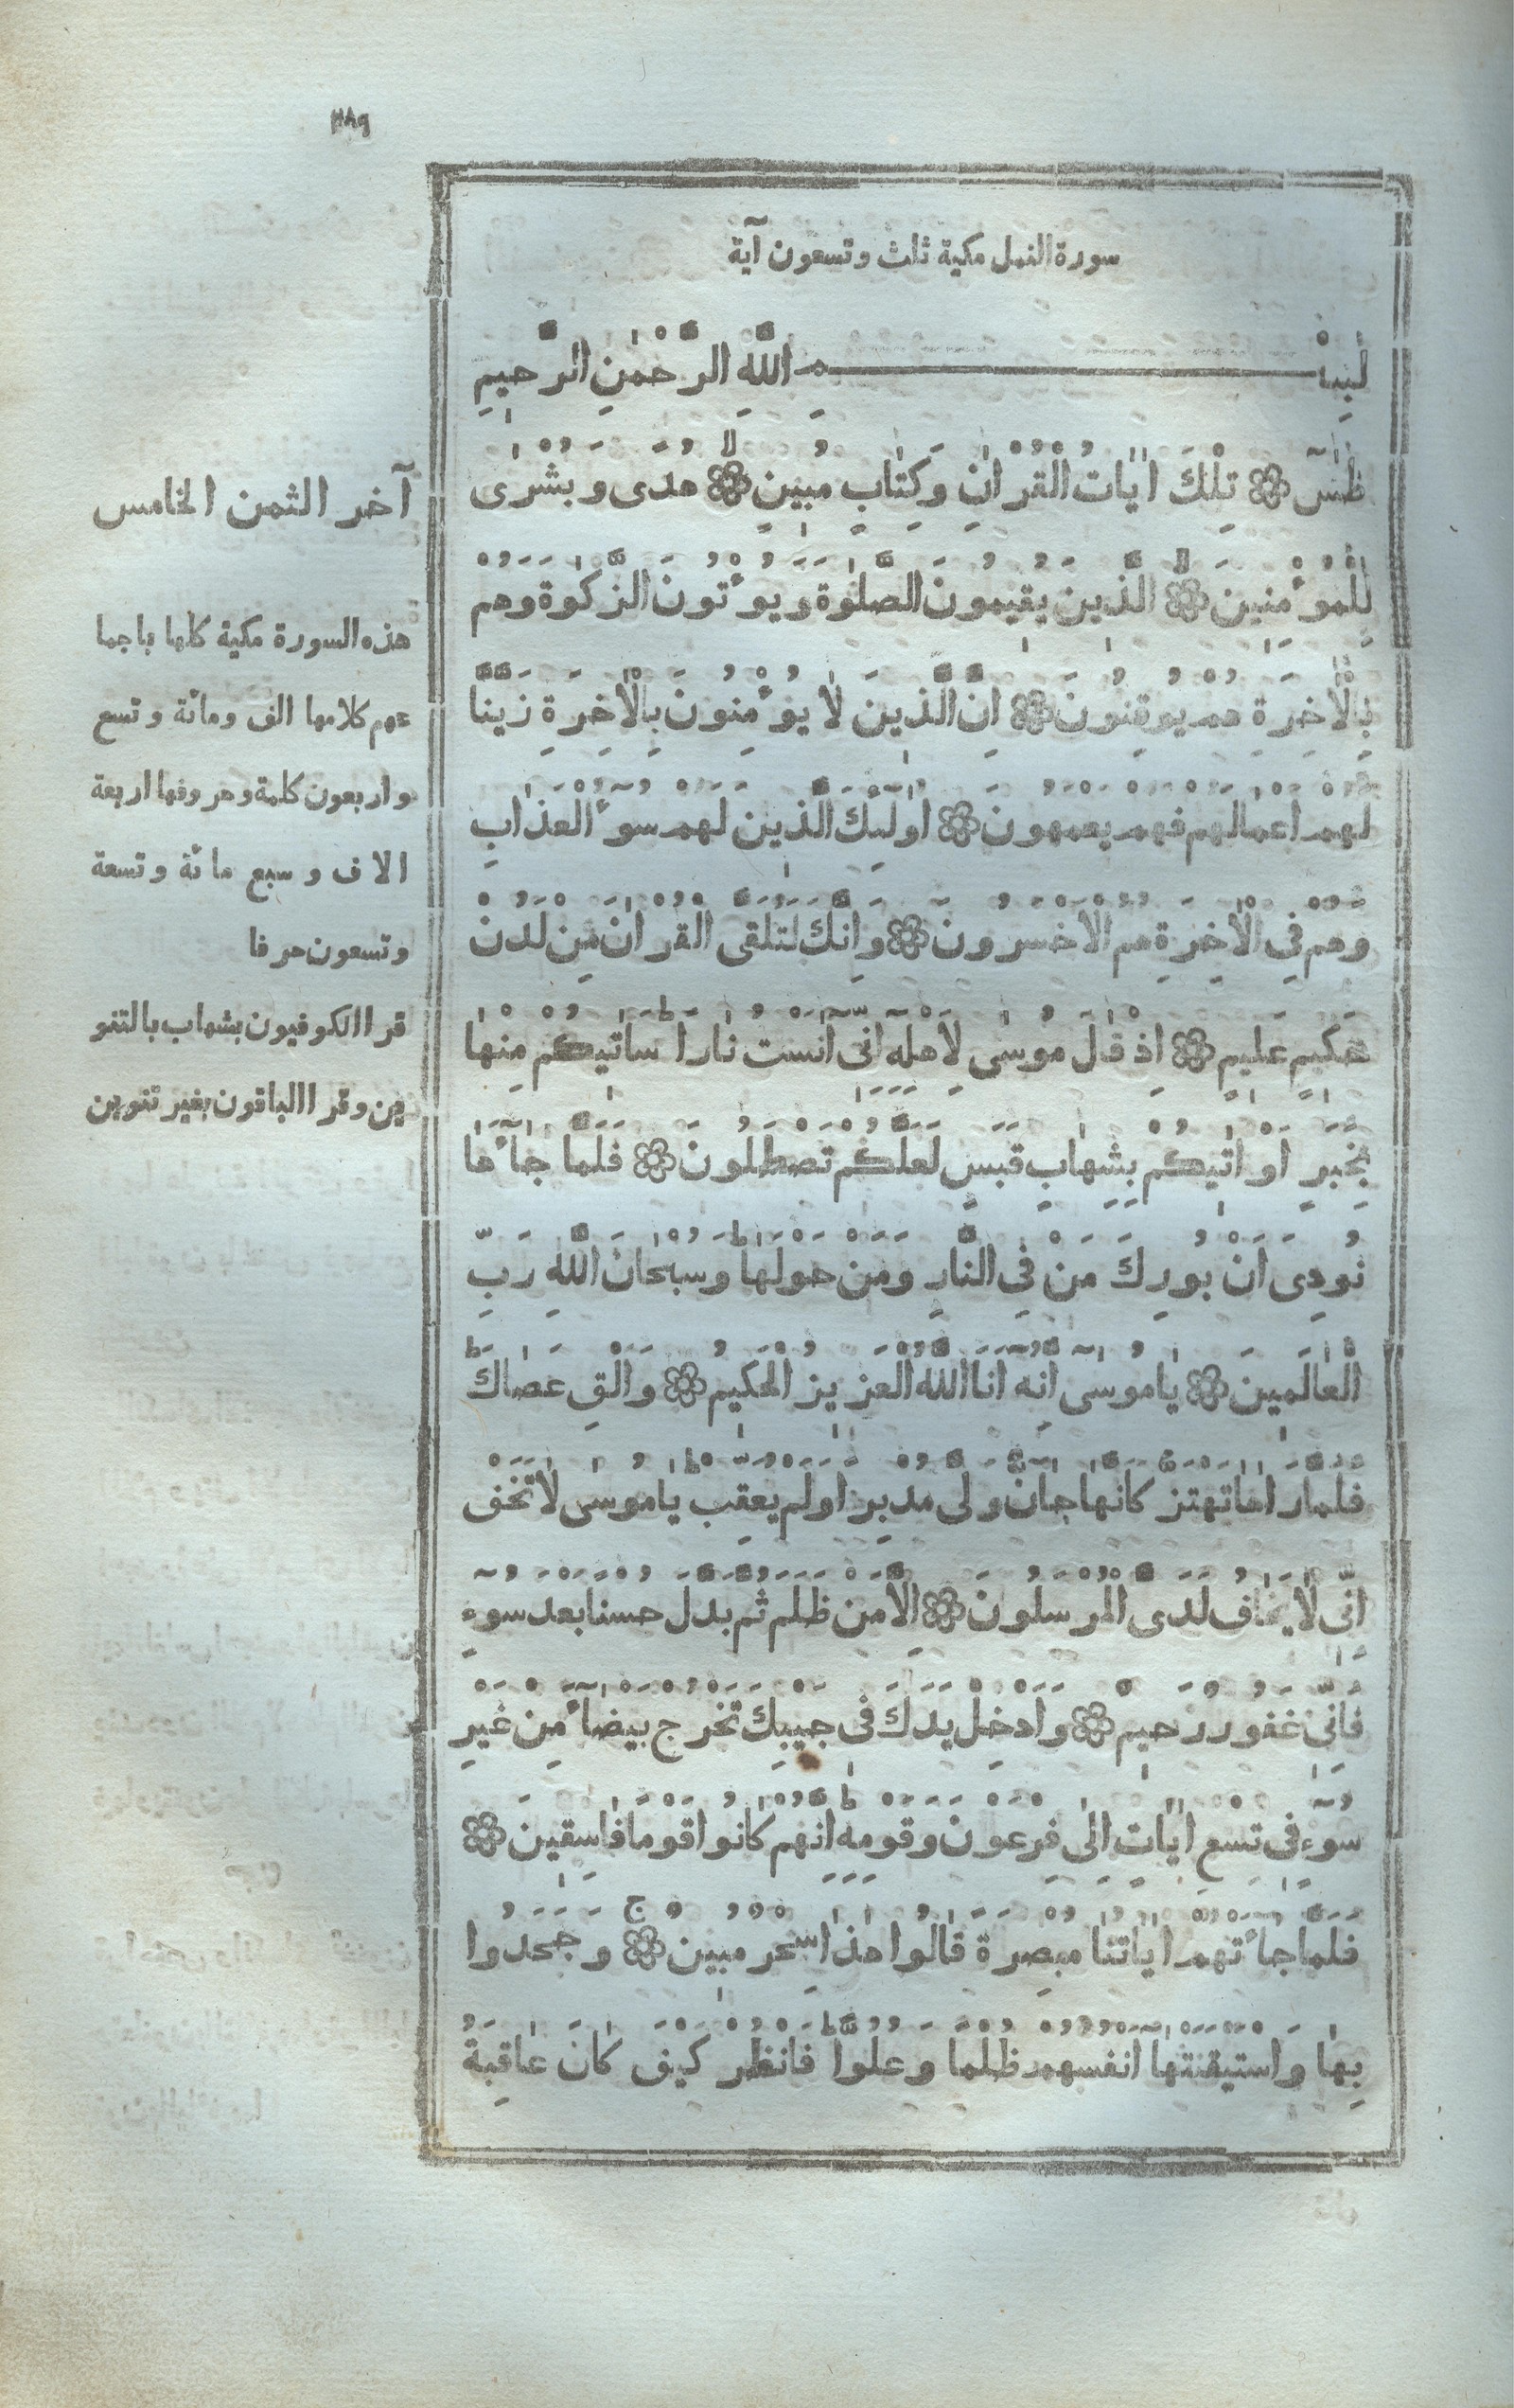 ٣٨٩
سورة النمل مكية ثلث وتسعون آية
بِسْمِ اللّٰهِ الرَّحْمٰنِ الرَّحِيمِ
طٰسٓ ۝ تِلْكَ اٰيَاتُ الْقُرْاٰنِ وَكِتَابٍ مُبِينٍ ۝ هُدًى وَبُشْرٰى
لِلْمُؤْمِنِينَ ۝ الَّذِينَ يُقِيمُونَ الصَّلٰوةَ وَيُؤْتُونَ الزَّكٰوةَ وَهُمْ
بِالْاٰخِرَةِ هُمْ يُوقِنُونَ ۝ اِنَّ الَّذِينَ لَا يُؤْمِنُونَ بِالْاٰخِرَةِ زَيَّنَّا
لَهُمْ اَعْمَالَهُمْ فَهُمْ يَعْمَهُونَ ۝ اُولٰٓئِكَ الَّذِينَ لَهُمْ سُوٓءُ الْعَذَابِ
وَهُمْ فِي الْاٰخِرَةِ هُمُ الْاَخْسَرُونَ ۝ وَاِنَّكَ لَتُلَقَّى الْقُرْاٰنَ مِنْ لَدُنْ
حَكِيمٍ عَلِيمٍ ۝ اِذْ قَالَ مُوسٰى لِاَهْلِهٓ اِنِّىٓ اٰنَسْتُ نَارًا سَاٰتِيكُمْ مِنْهَا
بِخَبَرٍ اَوْ اٰتِيكُمْ بِشِهَابٍ قَبَسٍ لَعَلَّكُمْ تَصْطَلُونَ ۝ فَلَمَّا جَآءَهَا
نُودِىَ اَنْ بُورِكَ مَنْ فِي النَّارِ وَمَنْ حَوْلَهَا وَسُبْحَانَ اللّٰهِ رَبِّ
الْعَالَمِينَ ۝ يَا مُوسٰىٓ اِنَّهٓ اَنَا اللّٰهُ الْعَزِيزُ الْحَكِيمُ ۝ وَاَلْقِ عَصَاكَ
فَلَمَّا رَاٰهَا تَهْتَزُّ كَاَنَّهَا جَانٌّ وَلّٰى مُدْبِرًا وَلَمْ يُعَقِّبْ يَا مُوسٰى لَا تَخَفْ
اِنِّى لَا يَخَافُ لَدَىَّ الْمُرْسَلُونَ ۝ اِلَّا مَنْ ظَلَمَ ثُمَّ بَدَّلَ حُسْنًا بَعْدَ سُوٓءٍ
فَاِنِّى غَفُورٌ رَحِيمٌ ۝ وَاَدْخِلْ يَدَكَ فِى جَيْبِكَ تَخْرُجْ بَيْضَآءَ مِنْ غَيْرِ
سُوٓءٍ فِى تِسْعِ اٰيَاتٍ اِلٰى فِرْعَوْنَ وَقَوْمِهِ اِنَّهُمْ كَانُوا قَوْمًا فَاسِقِينَ ۝
فَلَمَّا جَآءَتْهُمْ اٰيَاتُنَا مُبْصِرَةً قَالُوا هٰذَا سِحْرٌ مُبِينٌ ۝ وَجَحَدُوا
بِهَا وَاسْتَيْقَنَتْهَآ اَنْفُسُهُمْ ظُلْمًا وَعُلُوًّا فَانْظُرْ كَيْفَ كَانَ عَاقِبَةُ
آخر الثمن الخامس
هذه السورة مكية كلها باجما
عهم كلامها الف ومائة وتسع
واربعون كلمة وحروفها اربعة
الاف وسبع مائة وتسعة
وتسعون حرفا
قرا الكوفيون بشهاب بالتنو
ين وقرا الباقون بغير تنوين